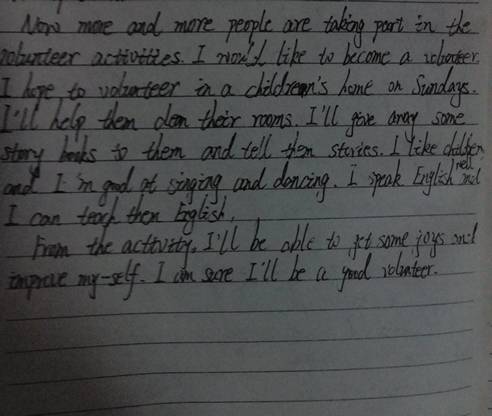 Now more and more people are taking part in the
volunteer activities. I would like to become a volunteer.
I hope to volunteer in a children's home on Sundays.
I'll help them clean their rooms. I'll give away some
story books to them and tell them stories. I like children,
and I'm good at singing and dancing. I speak English well and
I can teach them English.
From the activity, I'll be able to get some joys and
improve my-self. I am sure I'll be a good volunteer.